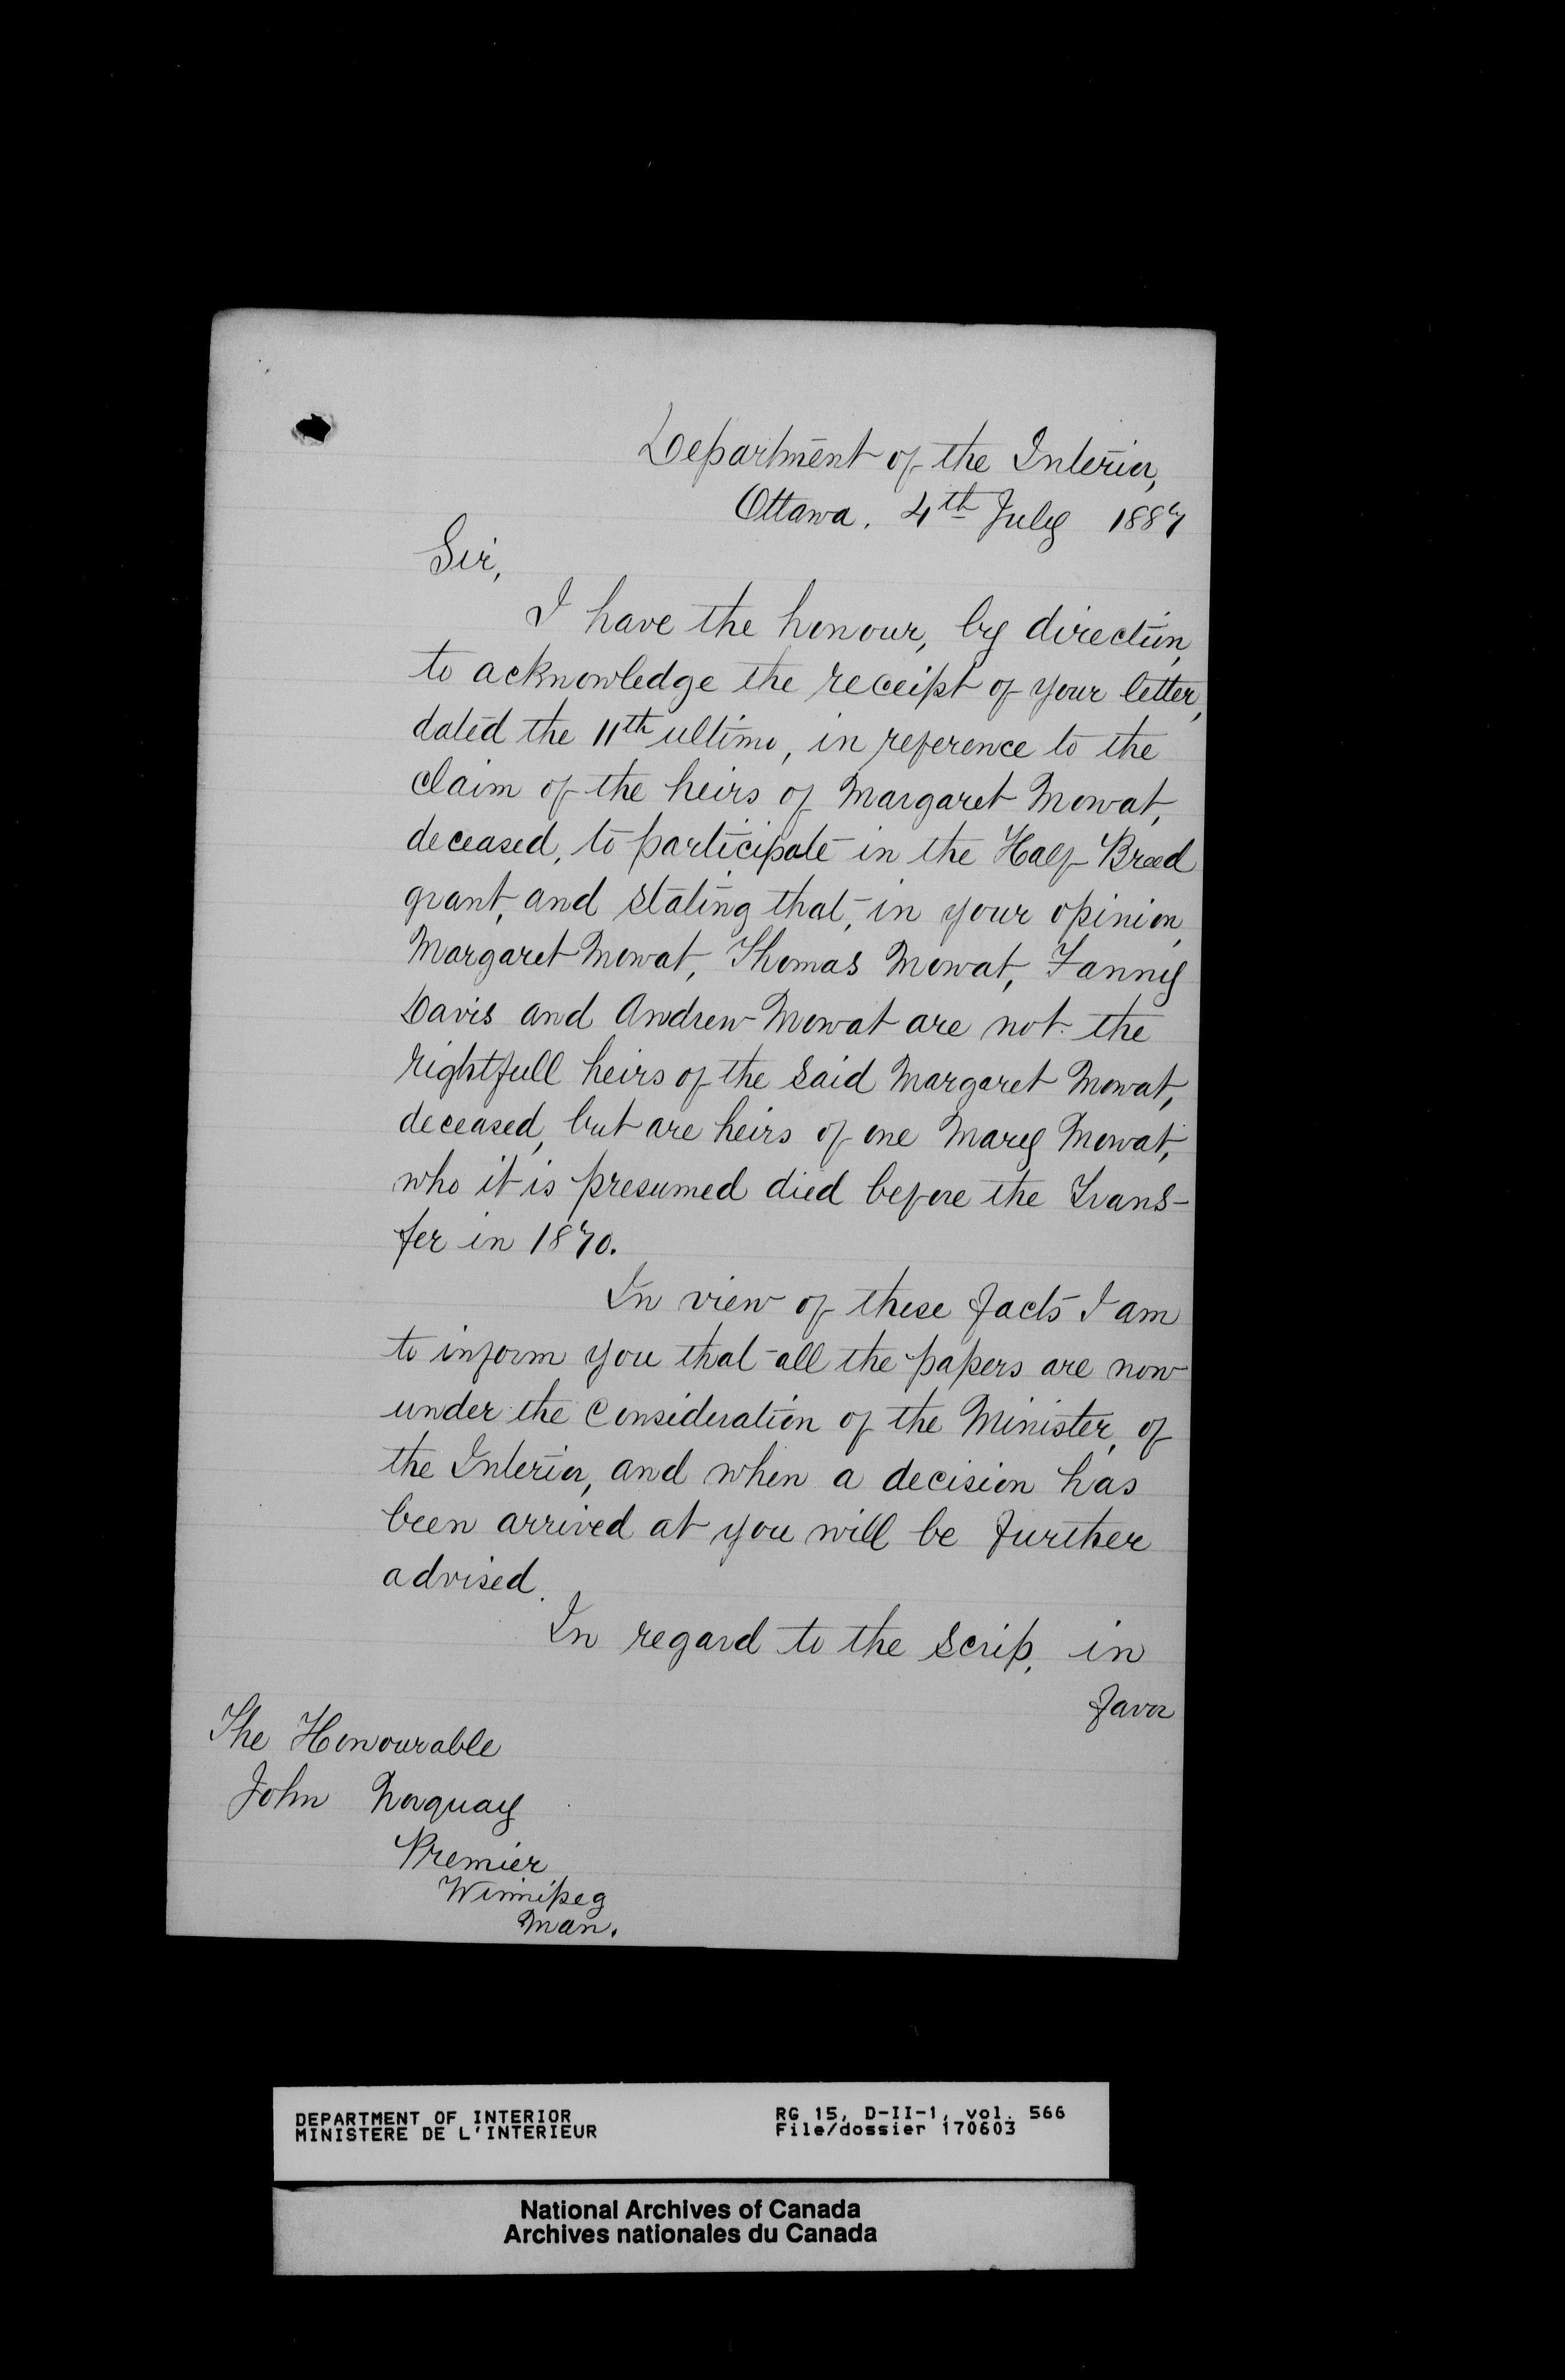 Department of the Interior,
Ottawa. 4th July 1887
Sir,
I have the honour, by direction,
to acknowledge the receipt of your letter,
dated the 11th ultimo, in reference to the
claim of the heirs of Margaret Mowat,
deceased, to participate in the Half-Breed
grant, and stating that, in your opinion,
Margaret Mowat, Thomas Mowat, Fanny
Davis and Andrew Mowat are not the
rightfull heirs of the said Margaret Mowat,
deceased, but are heirs of one Mary Mowat,
who it is presumed died before the Trans-
fer in 1870.
In view of these facts I am
to inform you that all the papers are now
under the consideration of the Minister, of
the Interior, and when a decision has
been arrived at you will be further
advised.
In regard to the scrip, in
favor
The Honourable
John Norquay
Premier
Winnipeg
Man.
DEPARTMENT OF INTERIOR
MINISTERE DE L'INTERIEUR
RG 15, D-II-1, vol. 566
File/dossier 170603
National Archives of Canada
Archives nationales du Canada